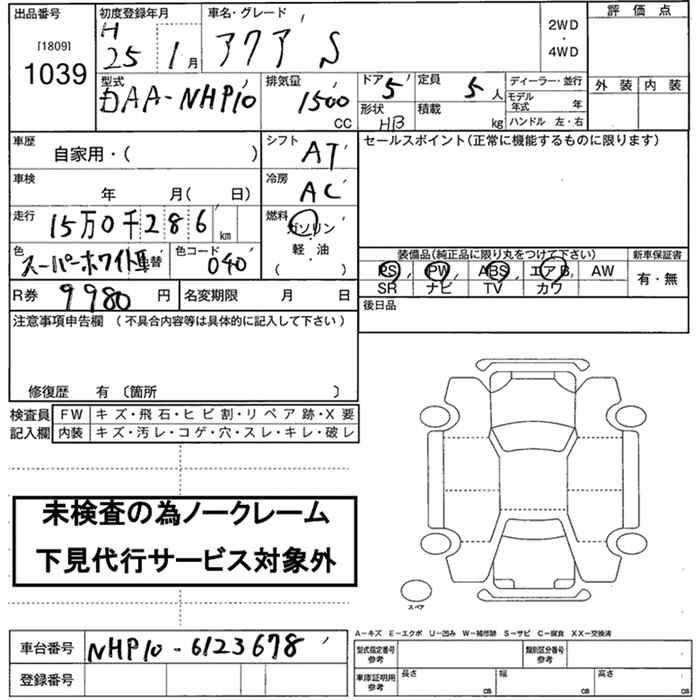 出品番号
[1809]
1039
初度登録年月
H
25 1 月
車名・グレード
アクア S
2WD
・
4WD
評価点
外装 内装
型式
DAA-NHP10
排気量
1500
CC
ドア 5
定員 5 人
形状 HB
積載 kg
ディーラー・並行
モデル年式 年
ハンドル 左・右
車歴
自家用・( )
シフト AT
車検
年 月( 日)
冷房 AC
走行
15万0千286 km
燃料
ガソリン
・
軽・油
( )
色
スーパーホワイトⅡ 替
色コード
040
R券 9980 円
名変期限 月 日
セールスポイント(正常に機能するものに限ります)
装備品(純正品に限り丸をつけて下さい)
PS PW ABS エアB AW
SR ナビ TV カワ
新車保証書
有・無
後日品
注意事項申告欄 (不具合内容等は具体的に記入して下さい)
修復歴 有〔箇所 〕
検査員記入欄
FW キズ・飛石・ヒビ割・リペア跡・X要
内装 キズ・汚レ・コゲ・穴・スレ・キレ・破レ
未検査の為ノークレーム
下見代行サービス対象外
スペア
A-キズ E-エクボ U-凹み W-補修跡 S-サビ C-腐食 XX-交換済
車台番号 NHP10-6123678
登録番号
型式指定番号 参考
類別区分番号 参考
車庫証明用 参考
長さ cm
幅 cm
高さ cm